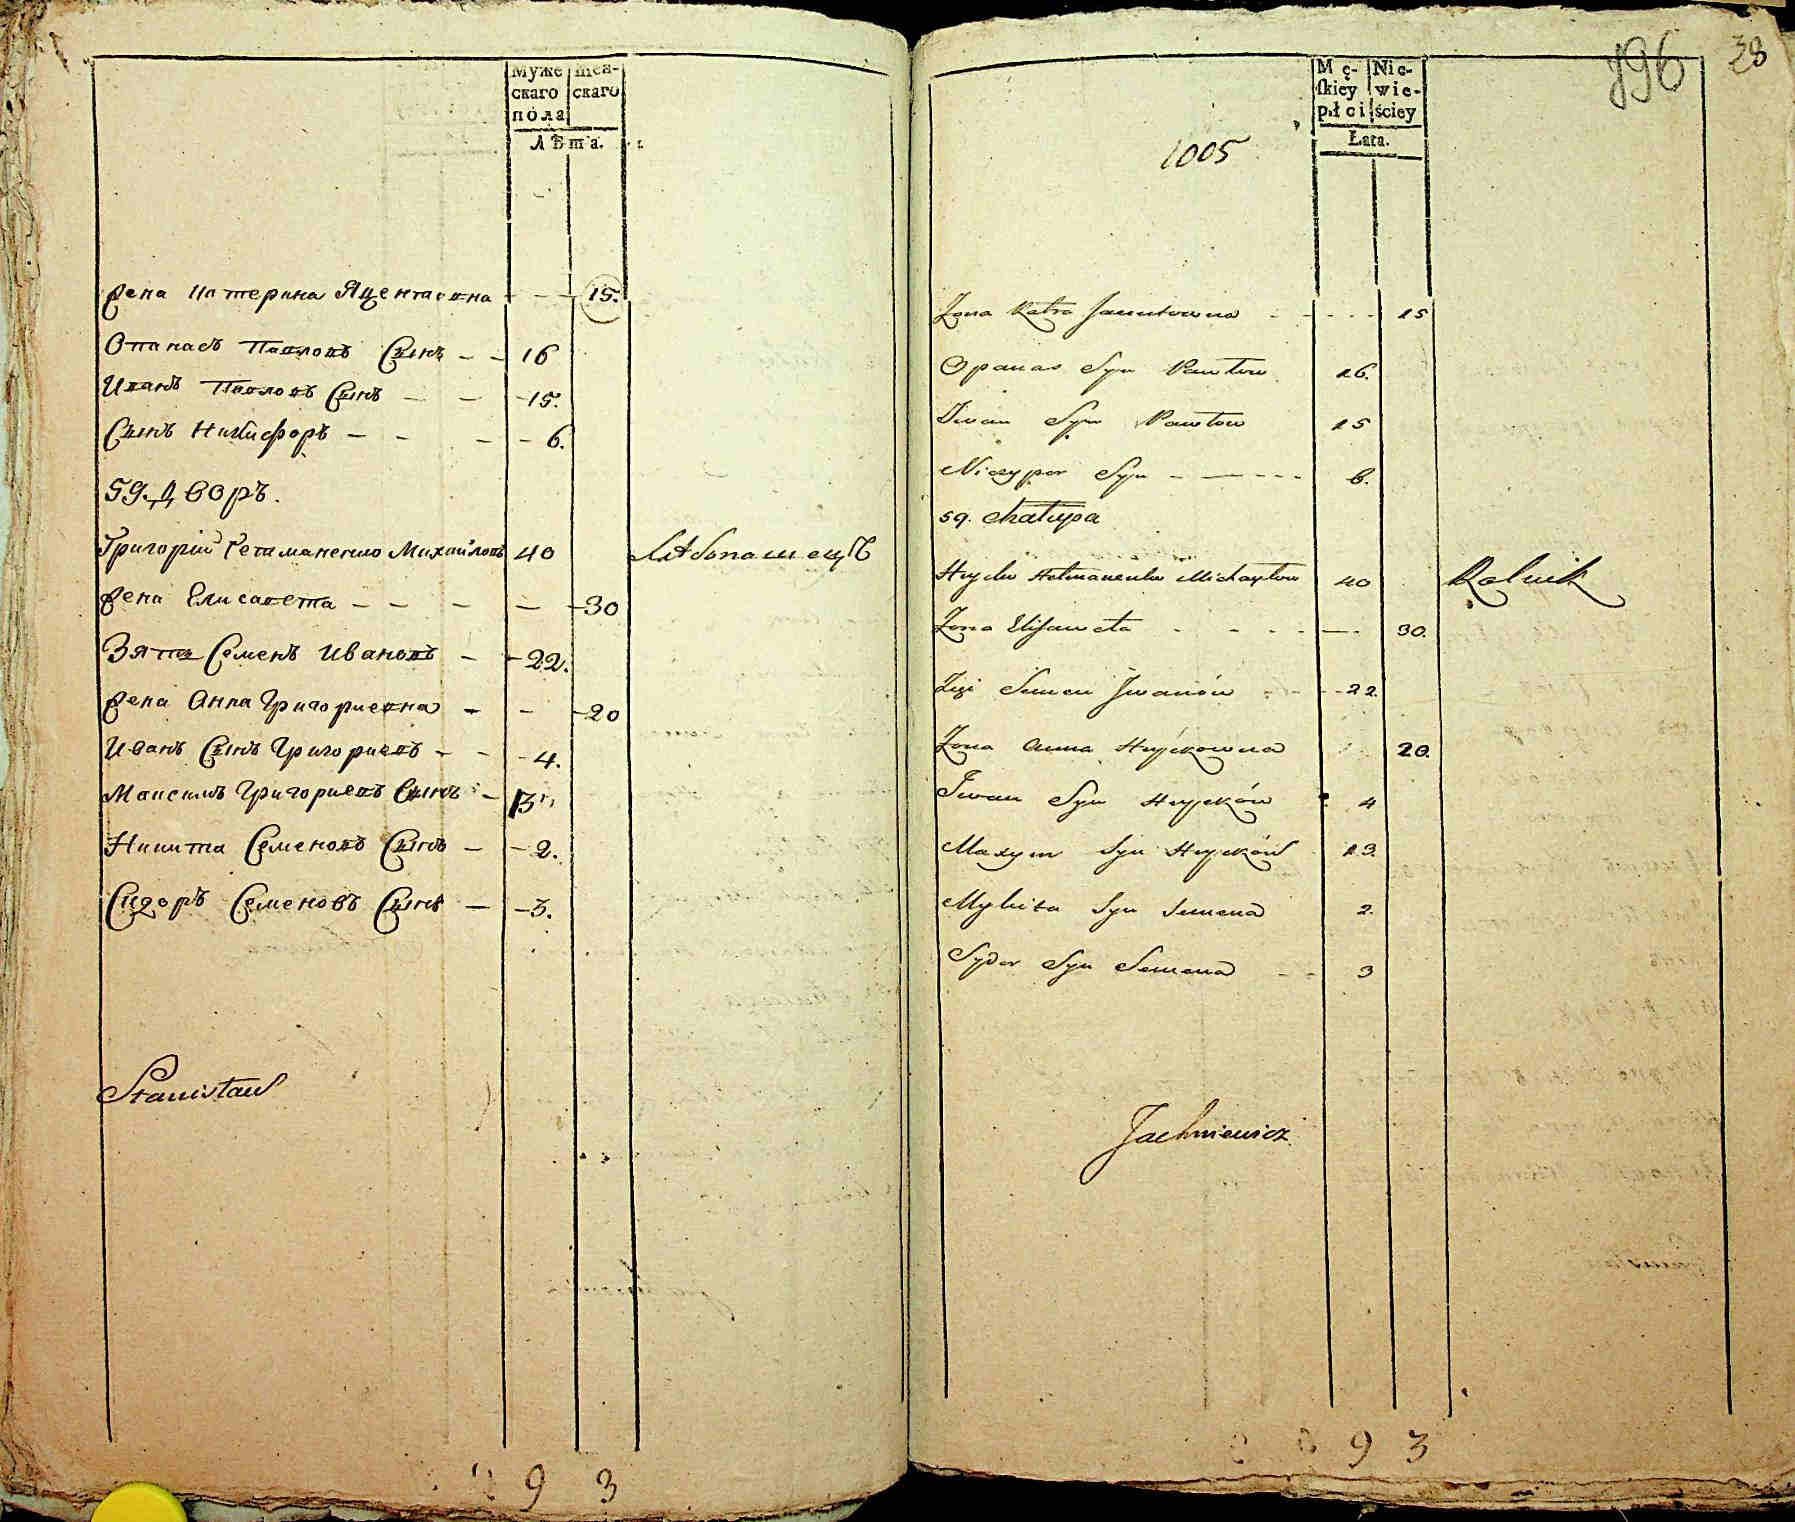 Муже
скаго
пола
жен-
скаго
Лѣта.
Жена Катерина Яцентовна - - 15.
Опанасъ Павловъ Сынъ - - 16
Иванъ Павловъ Сынъ - - 15.
Сынъ Никифоръ - - - 6.
59. Дворъ.
Григорій Гетманенко Михайловъ 40 Хлѣбопашецъ
Жена Елисавета - - - - 30
Зять Семенъ Ивановъ - - 22.
Жена Анна Григориевна - - - 20
Иванъ Сынъ Григориевъ - - 4.
Максимъ Григориевъ Сынъ - 13
Никита Семеновъ Сынъ - - 2.
Сидоръ Семеновъ Сынъ - - 3.
Stanisław
9 3
196 38
1005
Mę-
skiey
płci
Nie-
wie-
ściey
Łata.
Żona Katra Jacentowna - - - - 15
Opanas Syn Pawłow 16.
Iwan Syn Pawłow 15
Niczypor Syn - - - - 6.
59. Chałupa
Hryćko Hetmanenko Michayłow 40 Rolnik
Żona Elisaweta - - - - - 30.
Zięć Semen Iwanów - - 22.
Żona Anna Hryćkowna 20.
Iwan Syn Hryćków 4
Maxym Syn Hryćków 13.
Mykita Syn Semena 2.
Sydor Syn Semena - - 3
Jachniewicz
9 3